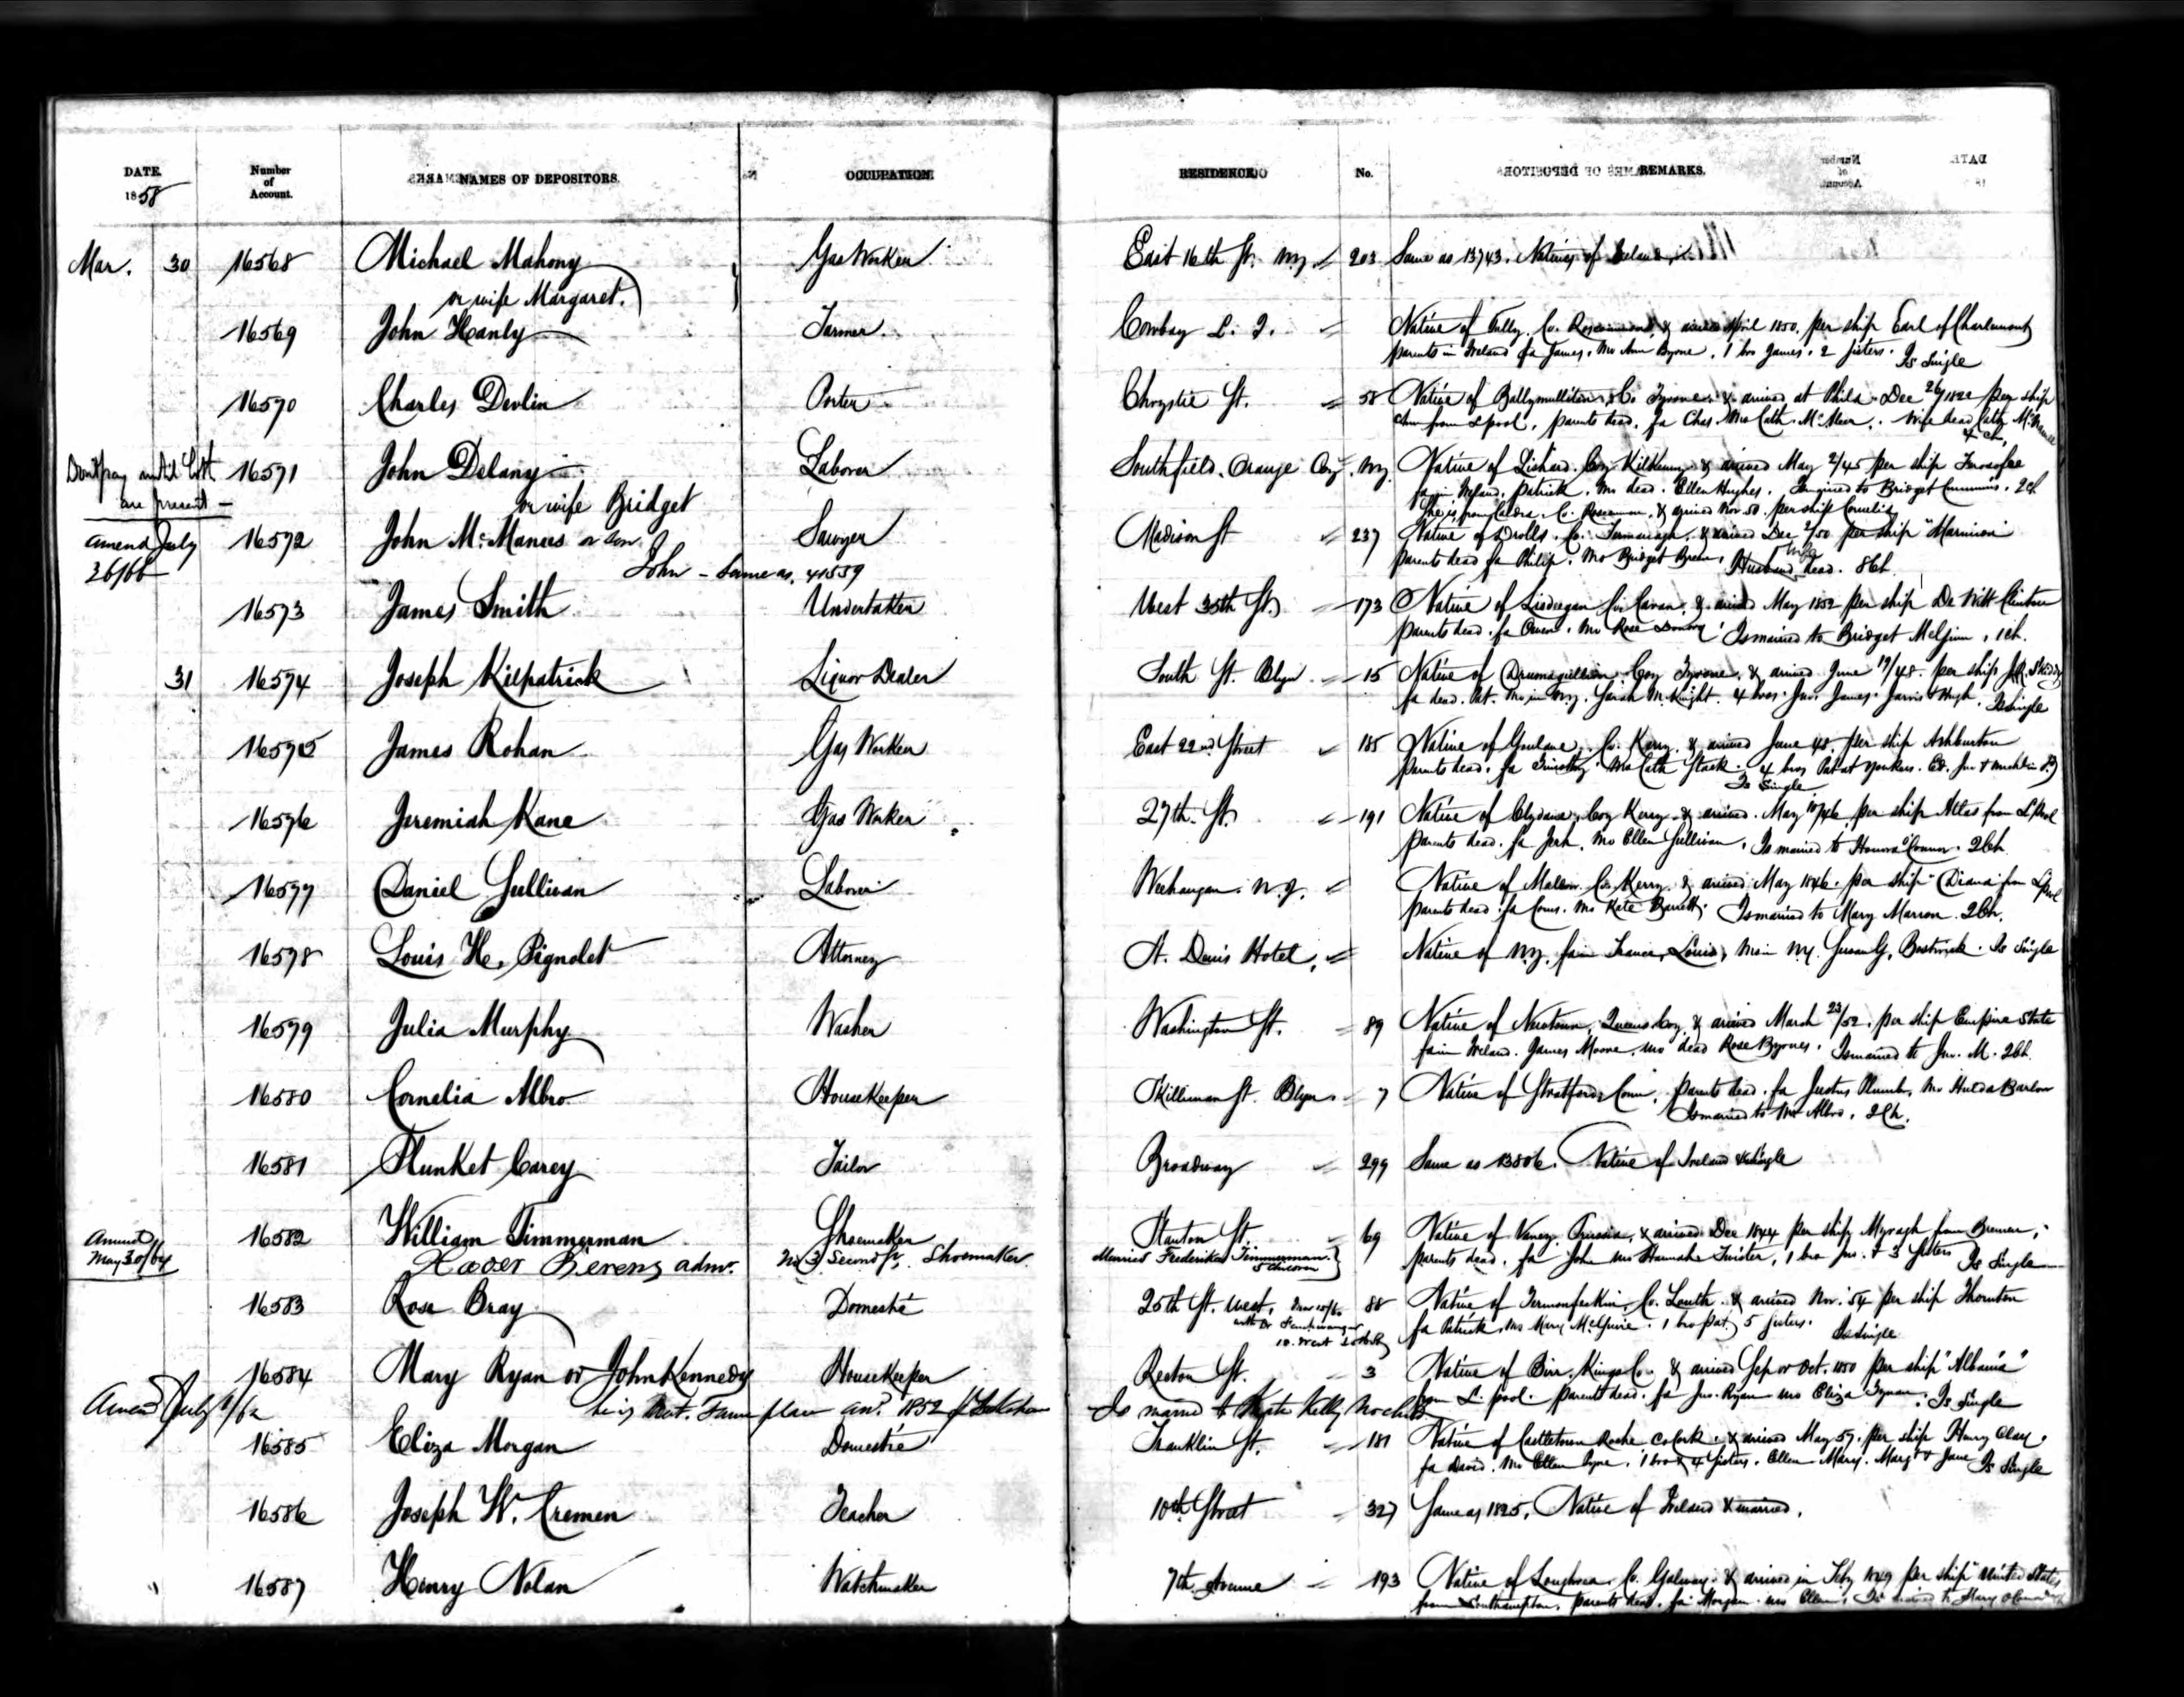 DATE. Number of Account. NAMES OF DEPOSITORS. OCCUPATION. RESIDENCE. No. REMARKS.
1858
Mar. 30 16568 Michael Mahony Gas Worker East 16th St. N.Y. 203 Same as 13743. Natives of Ireland
or wife Margaret.
16569 John Hanly Farmer. Cowbay L. I. Native of Tully. Co. Roscommon, & arrived April 1850. per ship Earl of Charlemont
parents in Ireland fa James. Mo Ann Byrne. 1 bro James. 2 sisters. Is Single
16570 Charles Devlin Porter Chrystie St. 58 Native of Co. Tyrone & arrived at Phila. Dec 26/1822 per ship
from Lpool. parents dead. fa Chas. Mo Cath. McMeer. Wife dead Cath
4 ch.
Dont pay until both 16571 John Delany Laborer Southfield. Orange Coy. N.Y. Native of Coy Kilkenny & arrived May 2/45 per ship
are present or wife Bridget fa in Ireland. Patrick. Mo dead. Ellen Hughes. to Bridget Cummins. 2 ch.
She is from Co. Roscommon. & arrived Nov 50. per ship Cornelia
Amend July 16572 John McManus or son Sawyer Madison St 237 Native of Co. Fermanagh. & arrived Dec 2/50 per ship "Marmion"
26/66 John - Same as. 41539 parents dead fa Philip. Mo Bridget Breen. Husband Wife dead. 8 Ch.
16573 James Smith Undertaker West 35th St. 173 Native of Co. Cavan. & arrived May 1852 per ship De Witt Clinton
parents dead. fa Owen. Mo Rose Is married to Bridget 1 ch.
31 16574 Joseph Kilpatrick Liquor Dealer South St. Blyn 15 Native of Coy Tyrone. & arrived June 19/48. per ship
fa dead. Pat. Mo in N.Y. Sarah McKnight. 4 bros. Jno. James. Jarvis & Hugh. Is Single
16575 James Rohan Gas Worker East 22nd Street 185 Native of Co. Kerry. & arrived June 48. per ship Ashburton
parents dead. fa Timothy. Mo Cath Stack. 4 bros Pat at Yonkers.
Is Single
16576 Jeremiah Kane Gas Worker 27th St. 191 Native of Coy Kerry & arrived. May 10/46 per ship Atlas from L'Pool
parents dead. fa Jerh. Mo Ellen Sullivan. Is married to Honora Connor. 2 Ch.
16577 Daniel Sullivan Laborer Weehaugan. N.J. Native of Co. Kerry. & arrived May 1846. per ship "Diana" from Lpool
parents dead. fa Corns. Mo Kate Barrett. Is married to Mary Marron. 2 Ch.
16578 Louis H. Pignolet Attorney St. Denis Hotel. Native of N.Y. fa in France, Louis, Mo in N.Y. Susan G. Bostwick. Is Single
16579 Julia Murphy Washer Washington St. 89 Native of Newtown, Queens Coy. & arrived March 23/52. per ship Empire State
fa in Ireland. James Moore. mo dead Rose Byrnes. Is married to Jno. M. 2 Ch.
16580 Cornelia Albro HouseKeeper Skillman St. Blyn 7 Native of Stratford, Conn. parents dead. fa Justus Plumb. Mo Hulda Barlow
Is married to Mr Albro. 2 Ch.
16581 Plunket Carey Tailor Broadway 299 Same as 13806. Native of Ireland & single
Amend 16582 William Timmerman Shoemaker Stanton St. 69 Native of Prussia, & arrived Dec 1844 per ship from Bremen,
May 30/64 Xaver Berens admr. No 3 Second St. Shoemaker. Married Frederika Timmerman. parents dead. fa John Mo Hannah 1 bro Jno. & 3 sisters Is Single
5 children
16583 Rose Bray Domestic 25th St. West. 88 Native of Termonfeckin, Co. Louth. & arrived Nov. 54 per ship Thornton
with Dr fa Patrick. Mo Mary McGuire. 1 bro Pat. 5 sisters. Is Single
10. West
16584 Mary Ryan or John Kennedy HouseKeeper Rector St. 3 Native of Birr. Kings Co. & arrived Sep or Oct. 1850 per ship "Albania"
Amend July 1/62 he is Nat. Same place arr. 1852 Is married to Kate Kelly No child from L. pool. parents dead. fa Jno. Ryan mo Eliza Is Single
16585 Eliza Morgan Domestic Franklin St. 181 Native of Castletown Roche Co Cork. & arrived May 57. per ship Henry Clay.
fa David. Mo Ellen 1 bro & 4 sisters. Ellen. Mary. Margt & Jane Is Single
16586 Joseph W. Cremen Teacher 10th Street 327 Same as 1825. Native of Ireland & married.
16587 Henry Nolan Watchmaker 7th Avenue 193 Native of Loughrea. Co. Galway. & arrived in Feby 1849 per ship "United States
from Southampton. parents dead. fa Morgan. mo Ellen. Is married to Mary